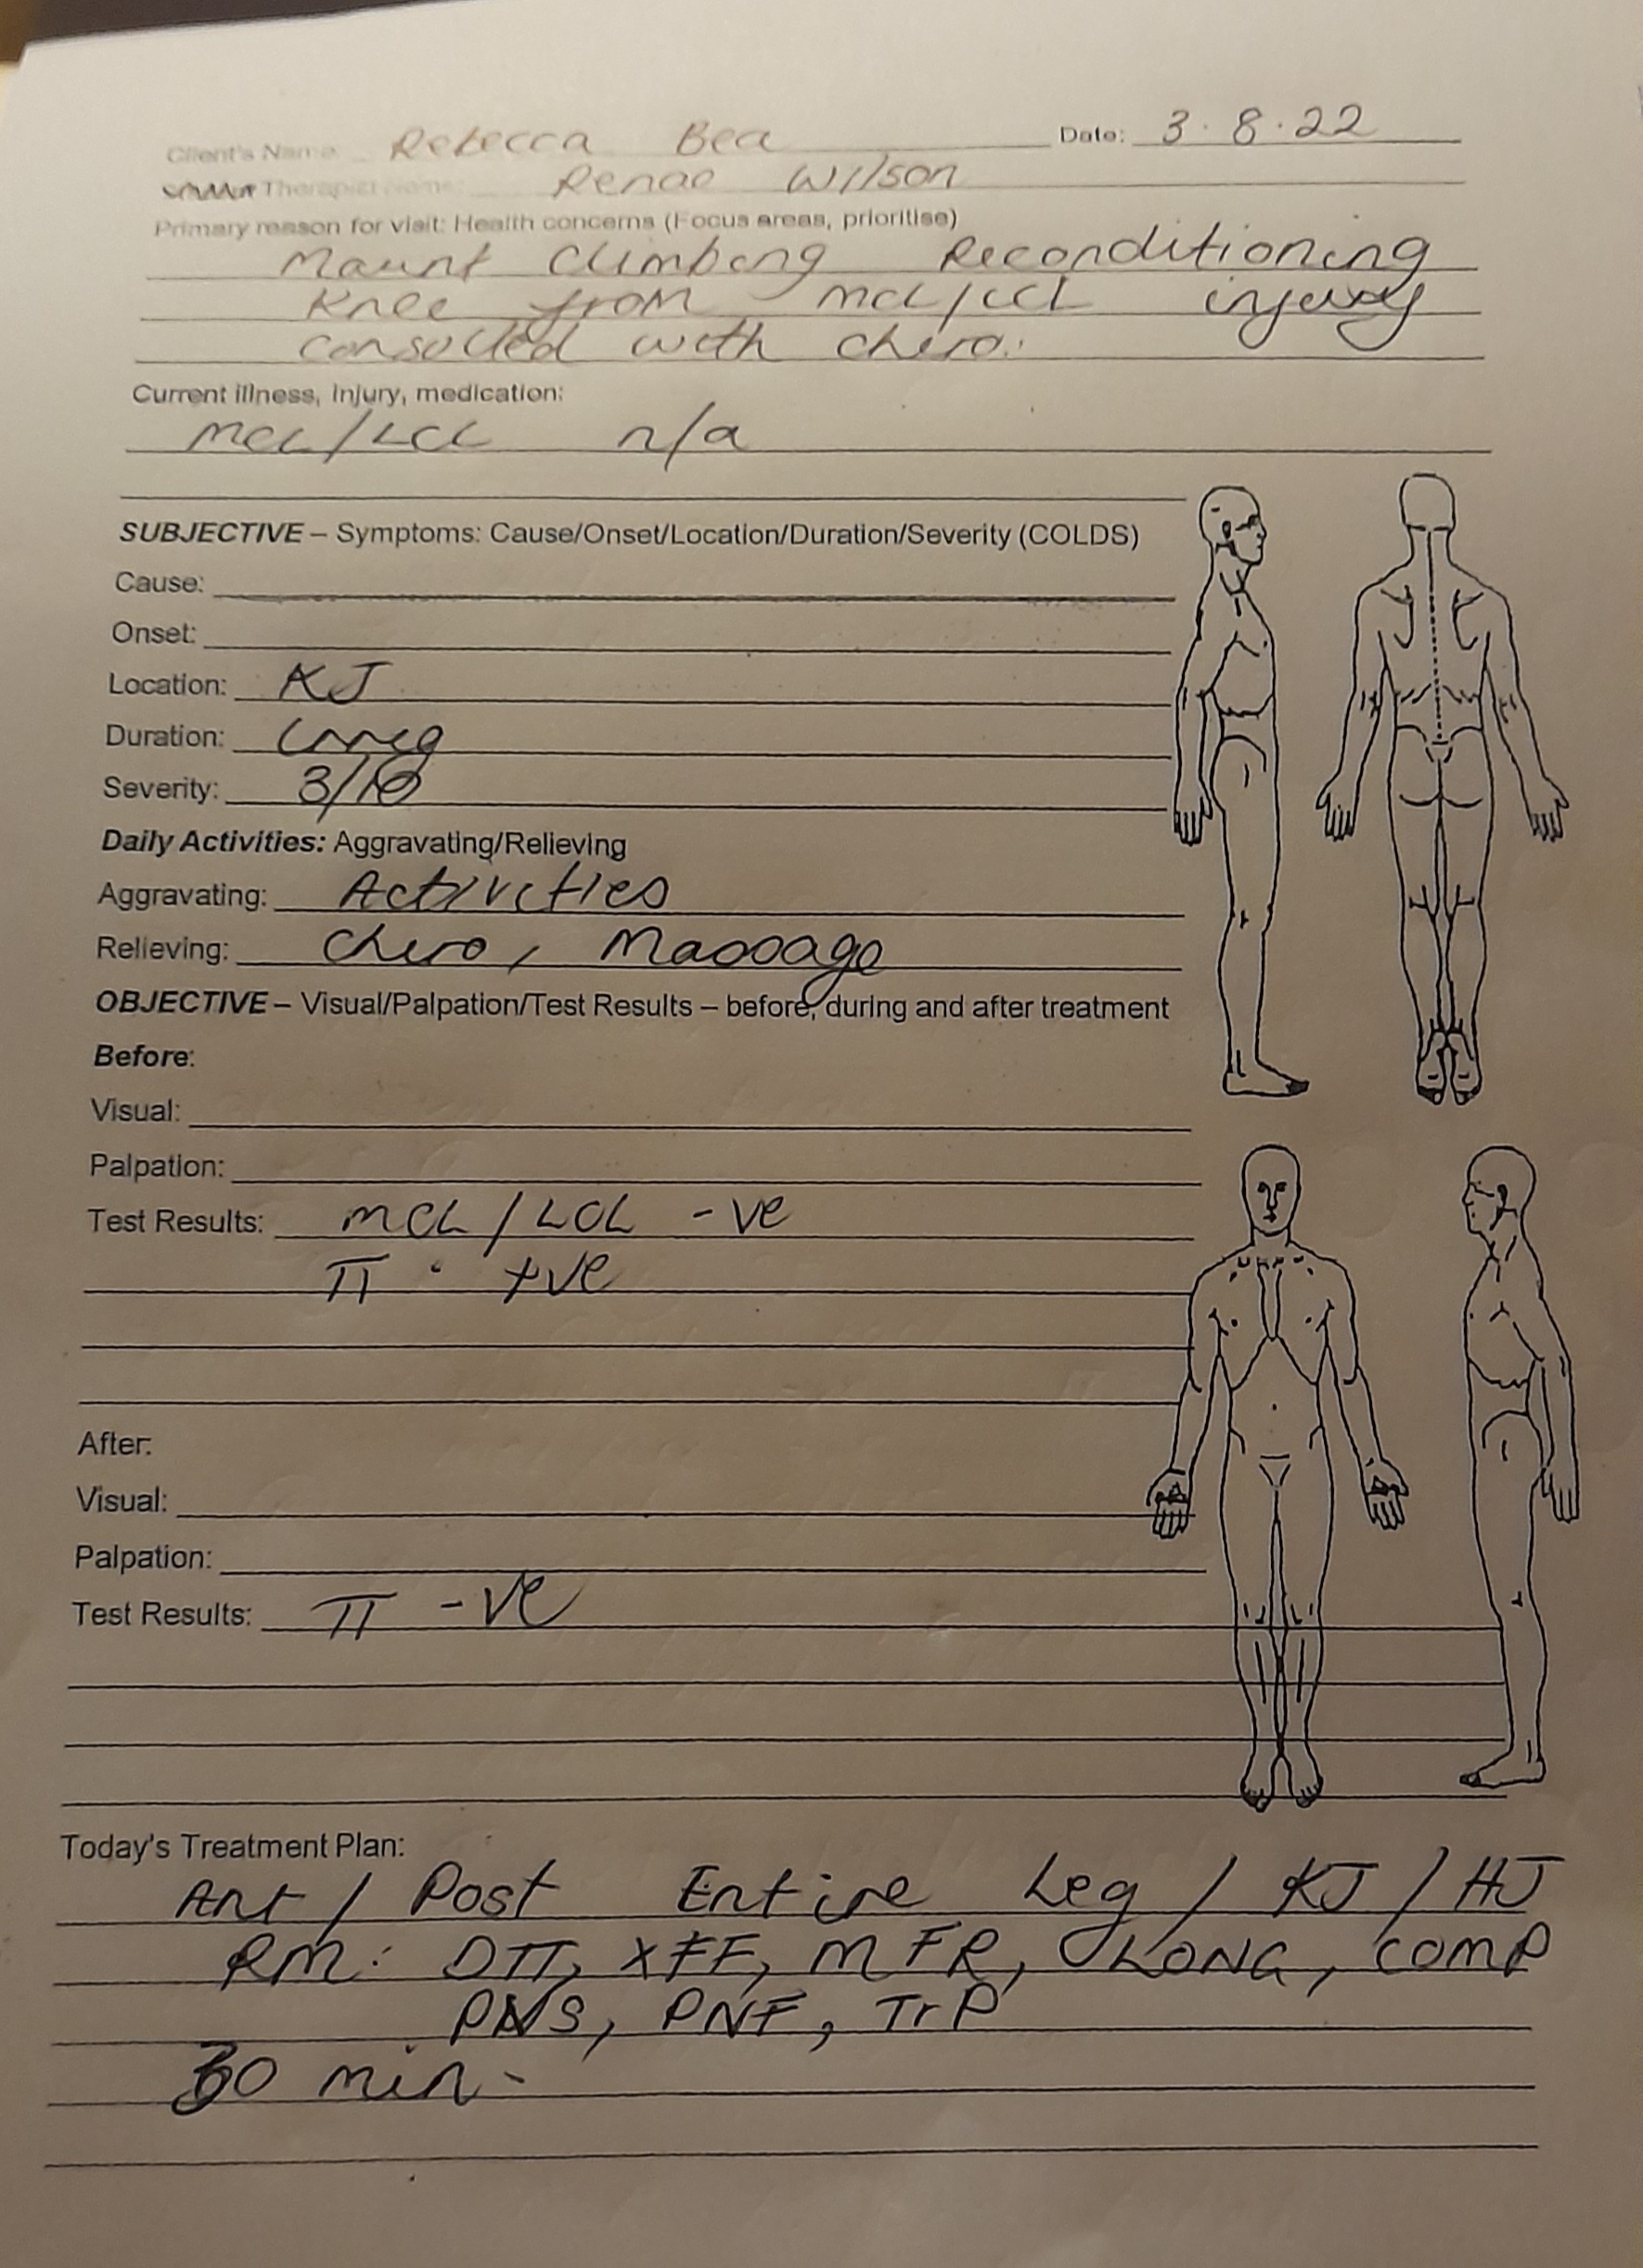 Client's Name: Rebecca Bea Date: 3.8.22
Therapist Name: Renae Wilson
Primary reason for visit: Health concerns (Focus areas, prioritise)
Mount Climbing Reconditioning
Knee from MCL/LCL injury
consulted with chiro.
Current illness, injury, medication:
MCL/LCL n/a
SUBJECTIVE – Symptoms: Cause/Onset/Location/Duration/Severity (COLDS)
Cause:
Onset:
Location: KJ
Duration:
Severity: 3/10
Daily Activities: Aggravating/Relieving
Aggravating: Activities
Relieving: Chiro, Massage
OBJECTIVE – Visual/Palpation/Test Results – before, during and after treatment
Before:
Visual:
Palpation:
Test Results: MCL / LCL -ve
π +ve
After:
Visual:
Palpation:
Test Results: π -ve
Today's Treatment Plan:
Ant / Post Entire Leg / KJ / HJ
RM: DTT, XFF, MFR, LONG, COMP
PNS, PNF, TrP
30 min.